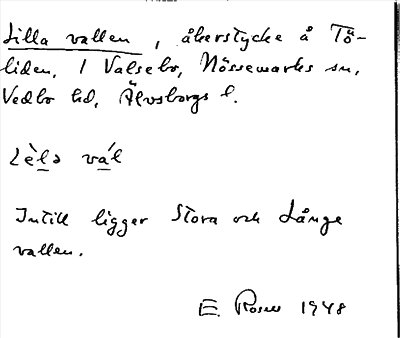 Lilla vallen, åkerstycke å Tö-
liden, 1 Valsebo, Nössemarks sn,
Vedbo hd, Älvsborgs l.
Lèlə vál
Intill ligger Stora och Långe
vallen.
E. Rosell 1948